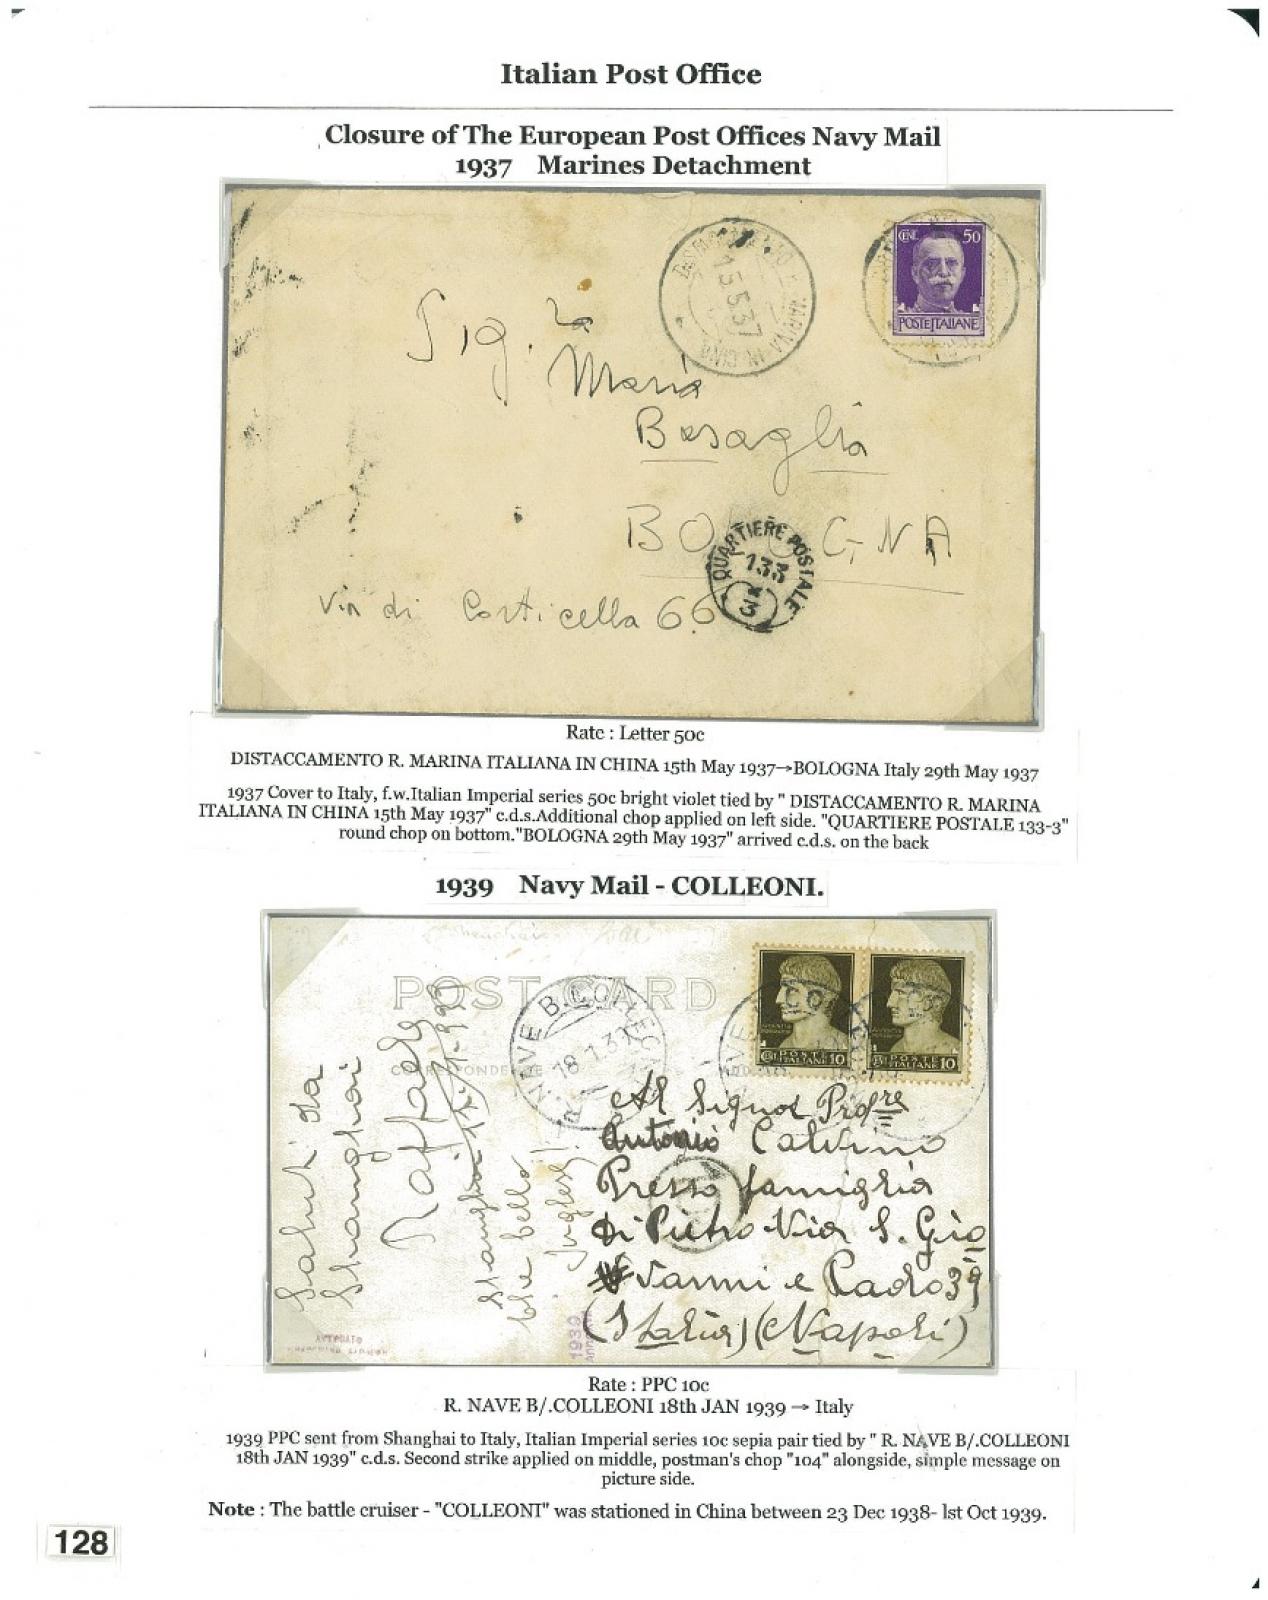 Italian Post Office
Closure of The European Post Offices Navy Mail
1937 Marines Detachment
CENT. 50
POSTE ITALIANE
15.5.37
MARINA IN CINA
Sig.ra
Maria
Basaglia
BOLOGNA
QUARTIERE POSTALE
133
3
Via di Corticella 66
Rate : Letter 50c
DISTACCAMENTO R. MARINA ITALIANA IN CHINA 15th May 1937→BOLOGNA Italy 29th May 1937
1937 Cover to Italy, f.w.Italian Imperial series 50c bright violet tied by " DISTACCAMENTO R. MARINA
ITALIANA IN CHINA 15th May 1937" c.d.s.Additional chop applied on left side. "QUARTIERE POSTALE 133-3"
round chop on bottom."BOLOGNA 29th May 1937" arrived c.d.s. on the back
1939 Navy Mail - COLLEONI.
POST CARD
CORRESPONDENCE
R. NAVE B. COLLEONI
18.1.39
POSTE ITALIANE 10
POSTE ITALIANE 10
Saluti da
Shanghai
Raffaele
Shanghai
che bello
Inglese!
Al Signor Prof.re
Antonio Calvino
Presso famiglia
di Pietro Via S. Gio
vanni e Paolo 39
(Italia) (Napoli)
1939
Rate : PPC 10c
R. NAVE B/.COLLEONI 18th JAN 1939 → Italy
1939 PPC sent from Shanghai to Italy, Italian Imperial series 10c sepia pair tied by " R. NAVE B/.COLLEONI
18th JAN 1939" c.d.s. Second strike applied on middle, postman's chop "104" alongside, simple message on
picture side.
Note : The battle cruiser - "COLLEONI" was stationed in China between 23 Dec 1938- lst Oct 1939.
128